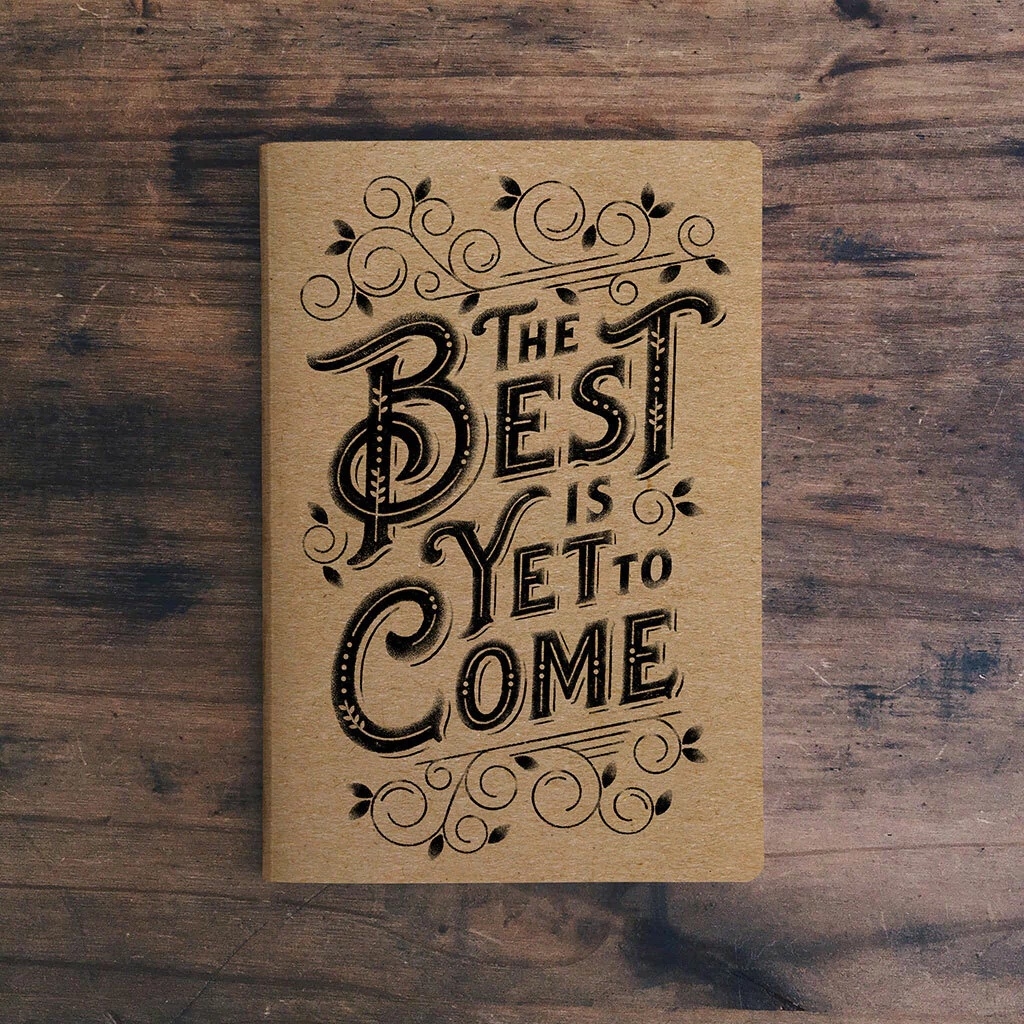 THE
BEST
IS
YET TO
COME